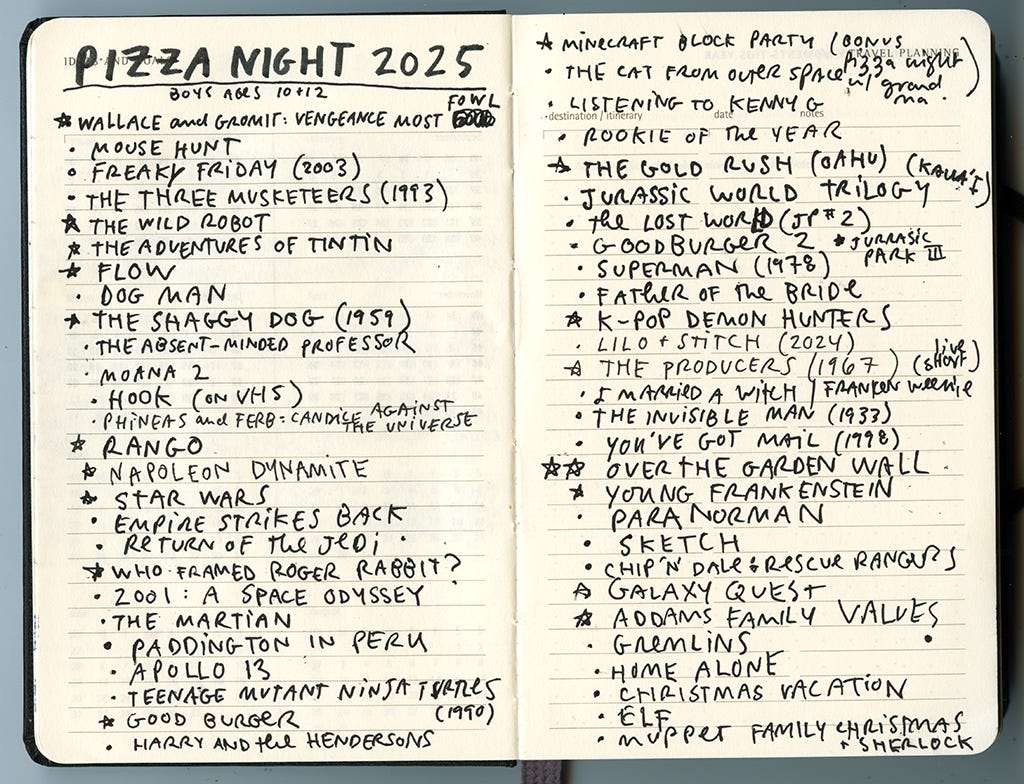 PIZZA NIGHT 2025
BOYS AGES 10+12
★ WALLACE and GROMIT: VENGEANCE MOST FOWL
• MOUSE HUNT
• FREAKY FRIDAY (2003)
• THE THREE MUSKETEERS (1993)
★ THE WILD ROBOT
★ THE ADVENTURES OF TINTIN
★ FLOW
• DOG MAN
★ THE SHAGGY DOG (1959)
• THE ABSENT-MINDED PROFESSOR
• MOANA 2
• HOOK (ON VHS)
• PHINEAS and FERB: CANDICE AGAINST
THE UNIVERSE
★ RANGO
★ NAPOLEON DYNAMITE
★ STAR WARS
• EMPIRE STRIKES BACK
• RETURN OF the JEDI •
★ WHO FRAMED ROGER RABBIT?
• 2001: A SPACE ODYSSEY
• THE MARTIAN
• PADDINGTON IN PERU
• APOLLO 13
• TEENAGE MUTANT NINJA TURTLES
(1990)
★ GOOD BURGER
• HARRY AND the HENDERSONS
TRAVEL PLANNING
★ MINECRAFT BLOCK PARTY (BONUS
pizza night
w/ grand
ma.)
• THE CAT FROM OUTER SPACE
• LISTENING TO KENNY G
destination / itinerary date notes
• ROOKIE OF the YEAR
★ THE GOLD RUSH (OAHU) (KAUA'I)
• JURASSIC WORLD TRILOGY
• the LOST WORLD (JP #2)
• GOODBURGER 2
• JURRASIC
PARK III
• SUPERMAN (1978)
• FATHER OF the BRIDE
★ K-POP DEMON HUNTERS
• LILO + STITCH (2024)
☆ THE PRODUCERS (1967) (live short)
• I MARRIED A WITCH / FRANKEN WEENIE
• THE INVISIBLE MAN (1933)
• YOU'VE GOT MAIL (1998)
★★ OVER THE GARDEN WALL
★ YOUNG FRANKENSTEIN
• PARANORMAN
• SKETCH
• CHIP 'N DALE: RESCUE RANGERS
☆ GALAXY QUEST
★ ADDAMS FAMILY VALUES
• GREMLINS
• HOME ALONE
• CHRISTMAS VACATION
• ELF
• MUPPET FAMILY CHRISTMAS
+ SHERLOCK